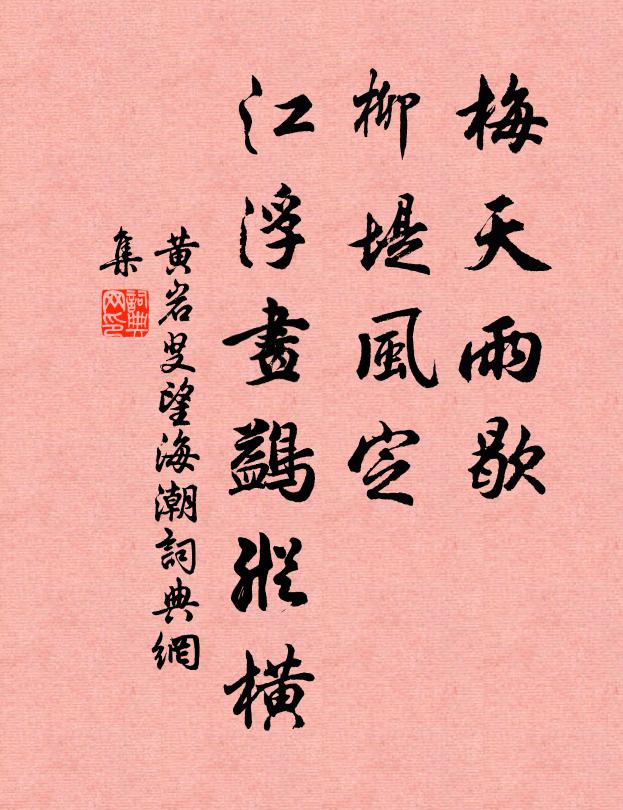 梅天雨歇
柳堤風定
江浮畫鷁縱橫
黃岩叟望海潮詞典網
集
詞典
网印